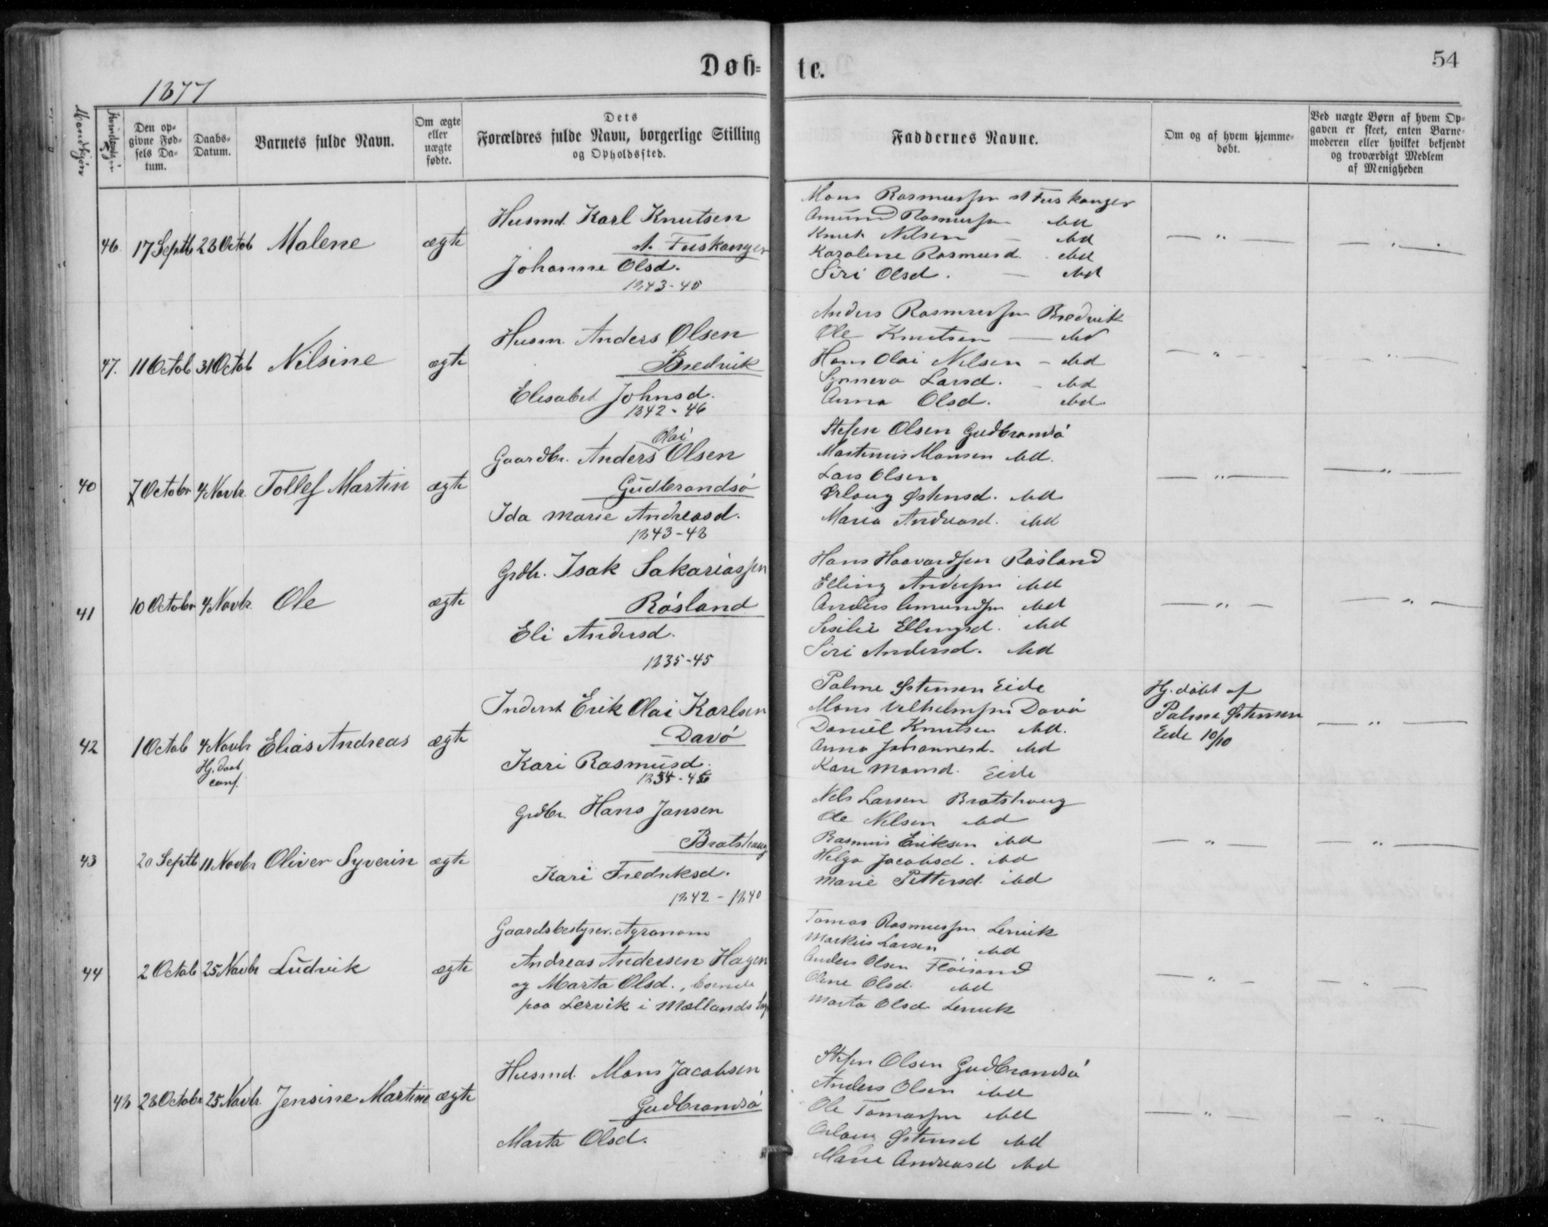 Døb=
te.
54
1877
Mandkjøn
Den op-
givne Fød-
sels Da-
tum.
Daabs-
Datum.
Barnets fulde Navn.
Om ægte
eller
uægte
fødte.
Dets
Forældres fulde Navn, borgerlige Stilling
og Opholdssted.
Faddernes Navne.
Om og af hvem hjemme-
døbt.
Ved uægte Børn af hvem Op-
gaven er skeet, enten Barne-
moderen eller hvilket bekjendt
og troværdigt Medlem
af Menigheden
46. 17 Septb 28 Octob Malene ægte
Husmd. Karl Knutsen
st. Fuskanger
Johanne Olsd.
1843-48
Mons Rasmussen st Fuskanger
Amund Rasmussen ibd
Knut Nilsen — ibd
Karoline Rasmusd. ibd
Siri Olsd. — ibd
— " —
— " —
47. 11 Octob 31 Octob Nilsine ægte
Husm Anders Olsen
Bredvik
Elisabet Johnsd.
1842-46
Anders Rasmussen Bredvik
Ole Knutsen — ibd
Hans Olai Nilsen — ibd
Larsd. — ibd
Anna Olsd. ibd.
— " —
— " —
40 7 Octobr 4 Novbr Tollef Martin ægte
Olai
Gaardbr. Anders Olsen
Gudbrandsø
Ida Marie Andreasd.
1843-48
Stefen Olsen Gudbrandsø
Martinus Monsen ibd.
Lars Olsen
Østensd. ibd
Maria Andreasd. ibd
— " —
— " —
41 10 Octobr 4 Novbr Ole ægte
Grdbr. Isak Sakariassen
Røsland
Eli Andersd.
1835-45
Hans Haavardsen Røsland
Elling Andersen ibd
Anders Amundsen ibd
Sisilie Ellingsd. ibd
Siri Andersd. ibd
— " —
— " —
42 1 Octob 4 Novbr Elias Andreas ægte
Hj. døbt
conf.
Inderst Erik Olai Karlsen
Davø
Kari Rasmusd.
Palme Østensen Eide
Mons Vilhelmsen Davø
Daniel Knutsen ibd.
Anna Johannesd. ibd
Kari Monsd. Eide
Hj. døbt af
Palme Østensen
Eide 10/10
— " —
43 20 Septb 11 Novbr Oliver Syverin ægte
Grdbr. Hans Jansen
Bratshaug
Kari Fredriksd.
1842 - 1840
Nels Larsen Bratshaug
Ole Nilsen ibd
Rasmus Eriksen ibd
Helga Jacobsd. ibd
Marie Pettersd. ibd
— " —
— " —
44 2 Octob 25 Novbr Ludvik ægte
Gaardsbestyrer. Agronom
Andreas Andersen Hagen
og Marta Olsd., boende
paa Lervik i Mællands
Tomas Rasmussen Lervik
Markus Larsen ibd
Anders Olsen Fløisand
Oline Olsd. ibd
Marta Olsd Lervik
— " —
— " —
48 28 Octobr 25 Novbr Jensine Martine ægte
Husmd. Mons Jacobsen
Gudbrandsø
Marta Olsd.
Stefen Olsen Gudbrandsø
Anders Olsen ibd
Ole Tomassen ibd
Østensd ibd
Marie Andreasd ibd
— " —
— " —